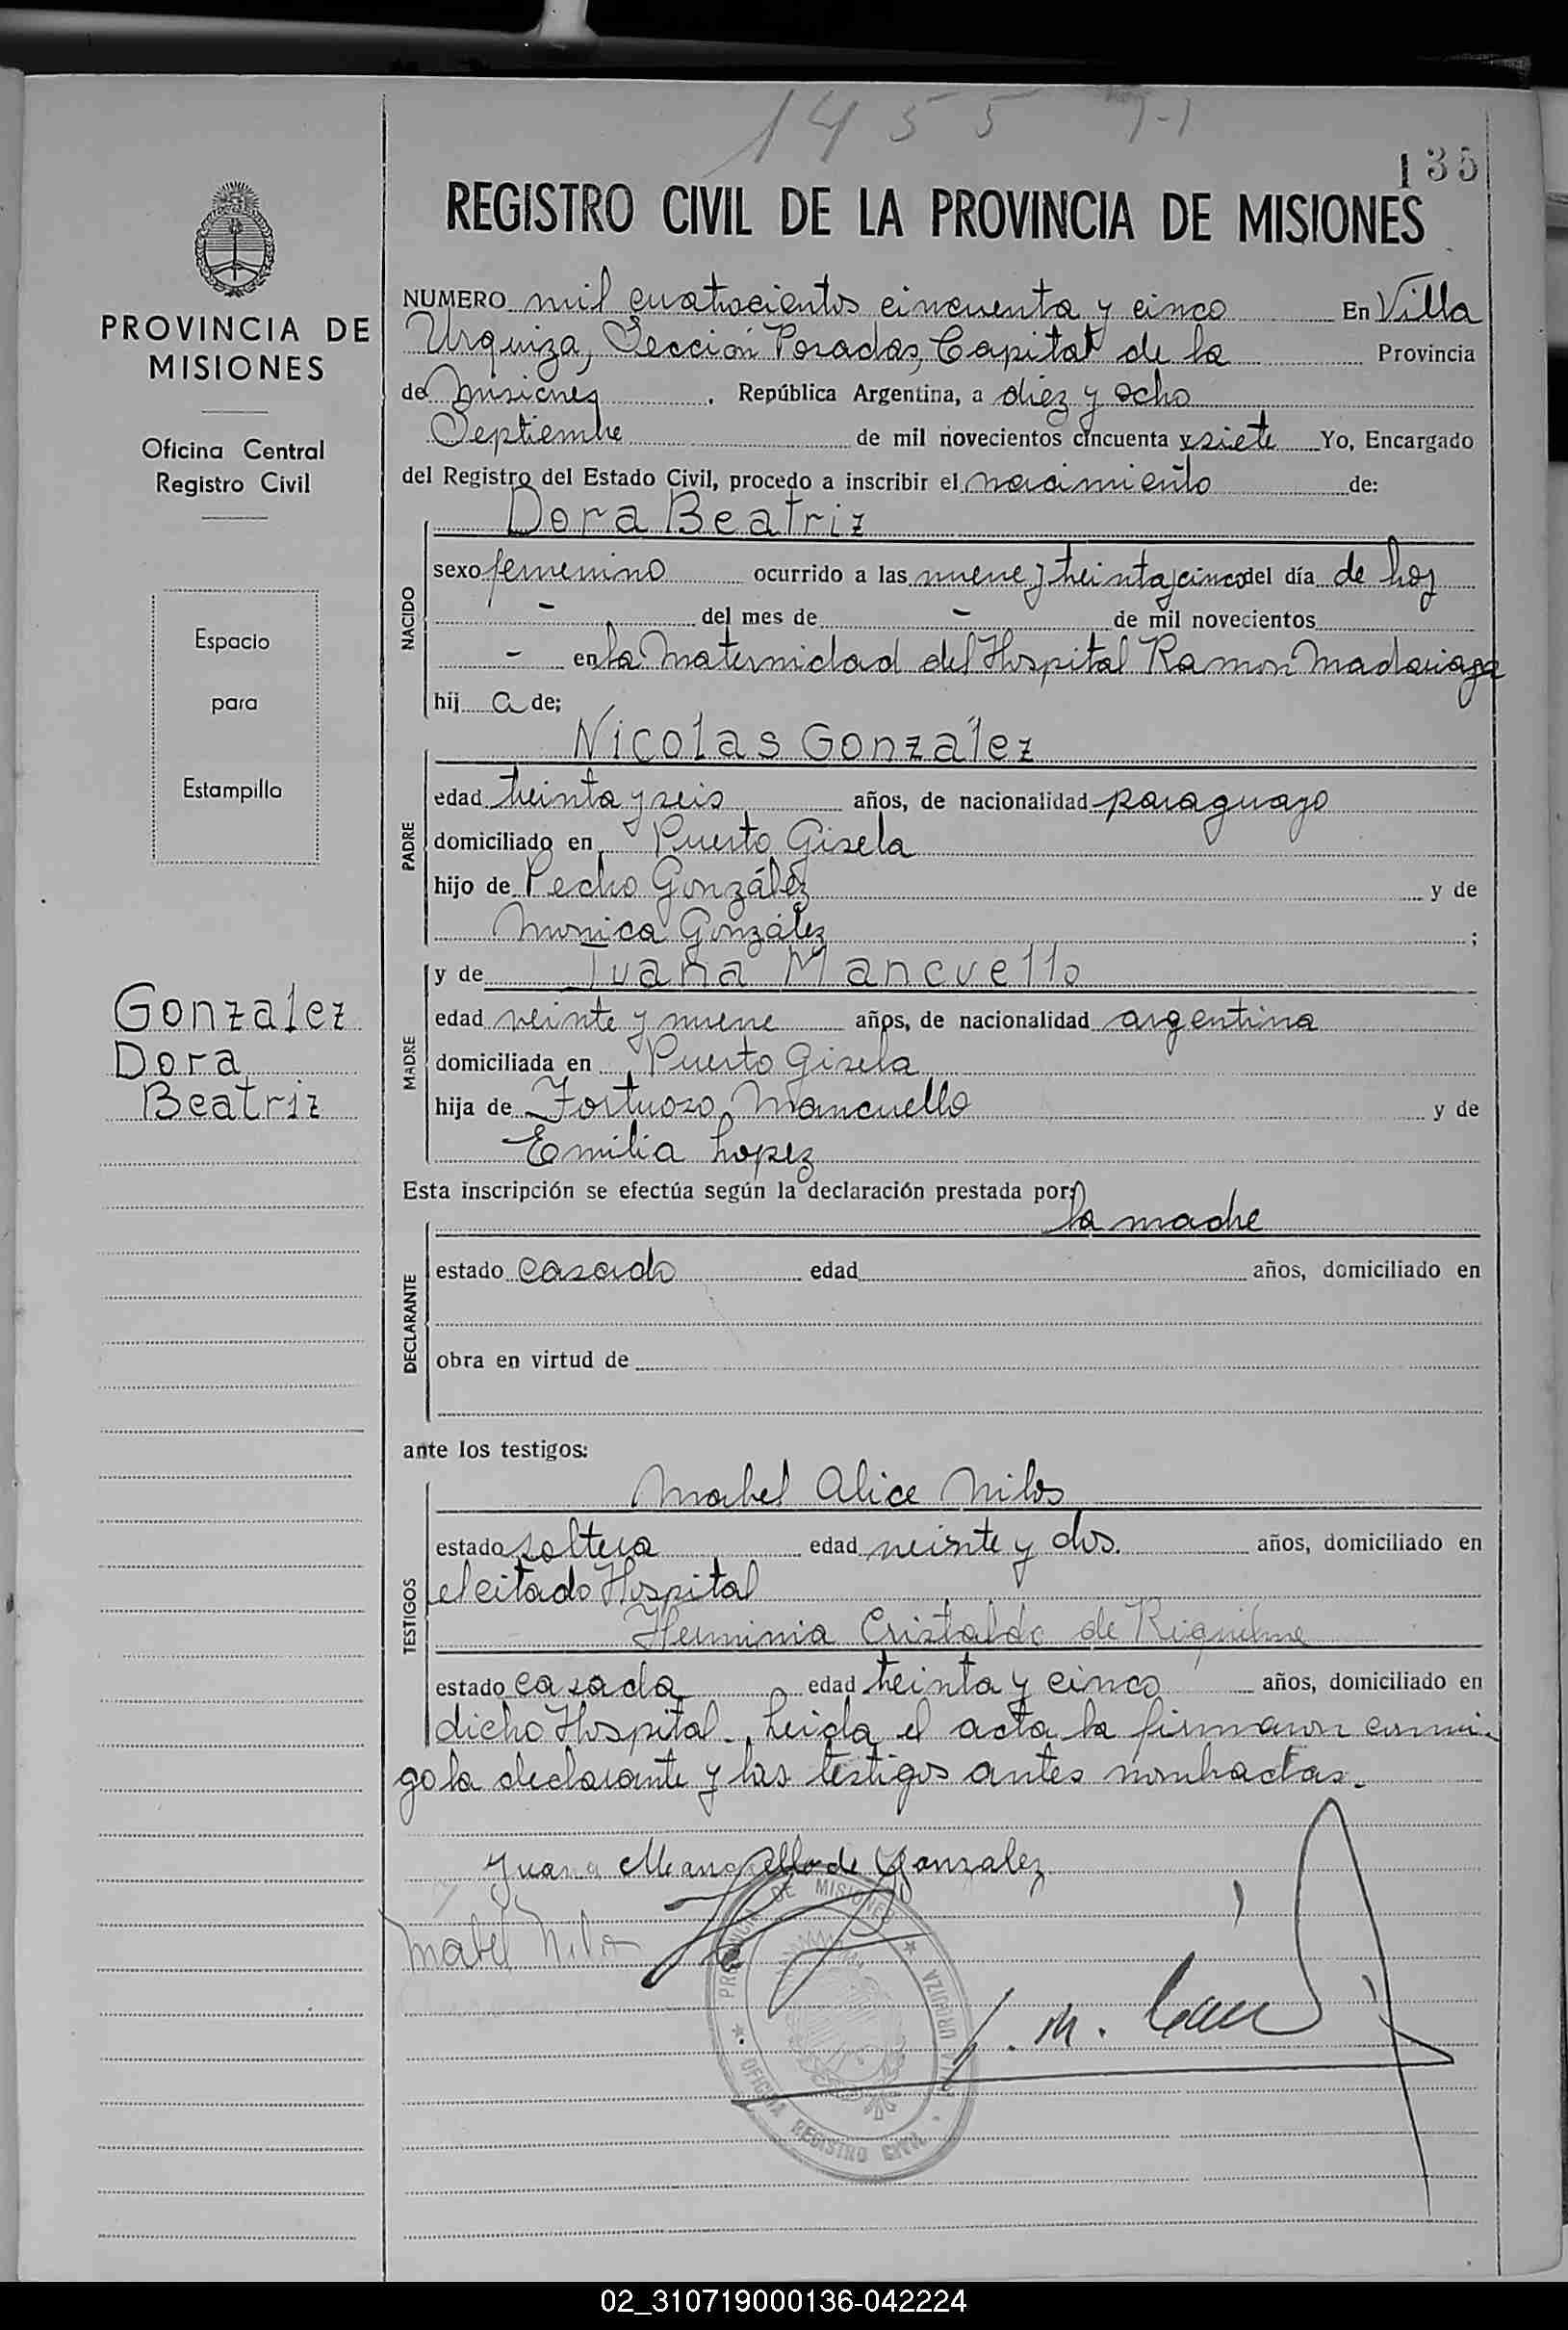 1455 7-1
135
REGISTRO CIVIL DE LA PROVINCIA DE MISIONES
PROVINCIA DE
MISIONES
Oficina Central
Registro Civil
Espacio
para
Estampilla
Gonzalez
Dora
Beatriz
NUMERO mil cuatrocientos cincuenta y cinco En Villa
Urquiza, Sección Posadas, Capital de la Provincia
de Misiones, República Argentina, a diez y ocho
Septiembre de mil novecientos cincuenta y siete Yo, Encargado
del Registro del Estado Civil, procedo a inscribir el nacimiento de:
NACIDO
Dora Beatriz
sexo femenino ocurrido a las nueve y treinta y cinco del día de hoy
- del mes de - de mil novecientos
- en la Maternidad del Hospital Ramon Madariaga
hij a de:
PADRE
Nicolas González
edad treinta y seis años, de nacionalidad paraguayo
domiciliado en Puerto Gisela
hijo de Pedro González y de
Monica González ;
MADRE
y de Juana Mancuello
edad veinte y nueve años, de nacionalidad argentina
domiciliada en Puerto Gisela
hija de Fortuoso Mancuello y de
Emilia Lopez
Esta inscripción se efectúa según la declaración prestada por:
DECLARANTE
la madre
estado casado edad años, domiciliado en
obra en virtud de
ante los testigos:
TESTIGOS
Mabel Alice Milos
estado soltera edad veinte y dos. años, domiciliado en
el citado Hospital
Herminia Cristaldo de Riquelme
estado casada edad treinta y cinco años, domiciliado en
dicho Hospital. Leida el acta la firmaron conmi-
go la declarante y las testigos antes nombradas.
Juana Mancuello de Gonzalez
Mabel
PROVINCIA DE MISIONES
OFICINA REGISTRO CIVIL
VILLA URQUIZA
02_310719000136-042224